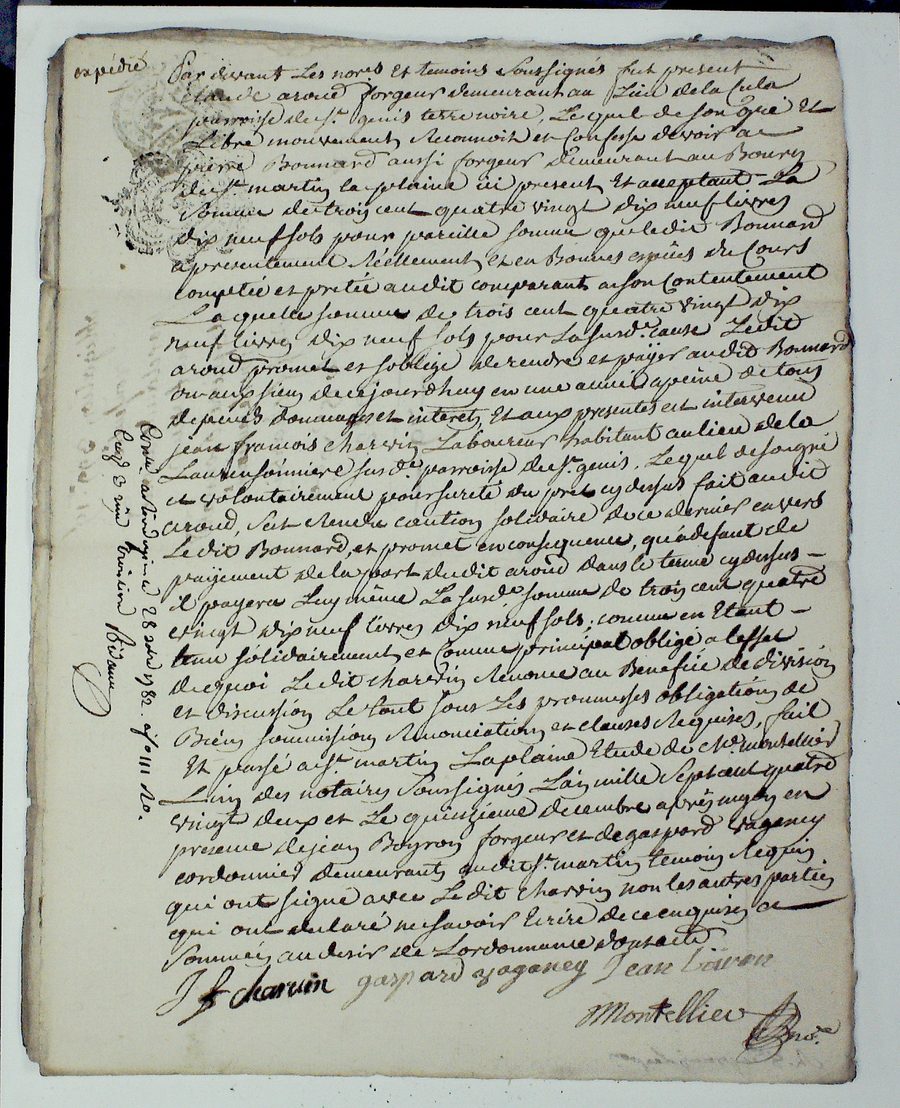 expédié
Par divant Les nores Et temoins Soussignés fut present
claude aroud forgeur demeurant au Lieu de la
parroisse de st. genis terre noire, Lequel de son gré Et
Libre mouvement Reconnoit et Confesse devoir a
pierre Bonnard aussi forgeur demeurant au Bourg
de st. martin la plaine ici present Et acceptant La
Somme de trois cent quatre vingt dix neuf livres
dix neuf sols pour pareille somme que ledit Bonnard
a presentement Réellement et en Bonnes espèces du Cours
comptée et prétée audit comparant a son Contentement
Laquelle somme de trois cent quatre vingt dix
neuf livres dix neuf sols pour La susd.e cause Ledit
aroud promet et soblige de rendre et payer audit Bonnard
ou aux siens de cejourdhuy en une année a peine de tous
depends dommages et interets, Et aux presentes est intervenu
jean francois charvin Laboureur habitant au lieu de la
Laurensonniere susde parroisse de st. genis, Lequel de son gré
et volontairement pour sureté du pret cydessus fait audit
aroud, s'est Rendu caution solidaire de ce dernier envers
Ledit Bonnard, et promet en consequence, qu'a defaut de
payement de la part dudit aroud dans le terme cydessus
il payera Luy même La susde somme de trois cent quatre
vingt dix neuf livres dix neuf sols, comme en Etant
tenu solidairement et Comme principal obligé a leffet
de quoi Ledit charvin Renonce au Bénéfice de division
et discussion Le tout sous Les promesses obligations de
Biens soumissions Renonciations et clauses Requises, fait
Et passé a st. martin Laplaine Etude de Me. montellier
L'un des notaires Soussignés L'an mille Sept cent quatre
vingt deux et Le quinzieme decembre après midy en
presence de jean Boyron forgeur et de gaspard vaganey
cordonnier demeurants audit st. martin temoins Requis
qui ont signé avec Ledit charvin non les autres parties
qui ont declaré ne savoir Ecrire de ce enquises et
Sommées au desir de Lordonnance
J f charvin gaspard vaganey Jean
Montellier nore.
28 1782.